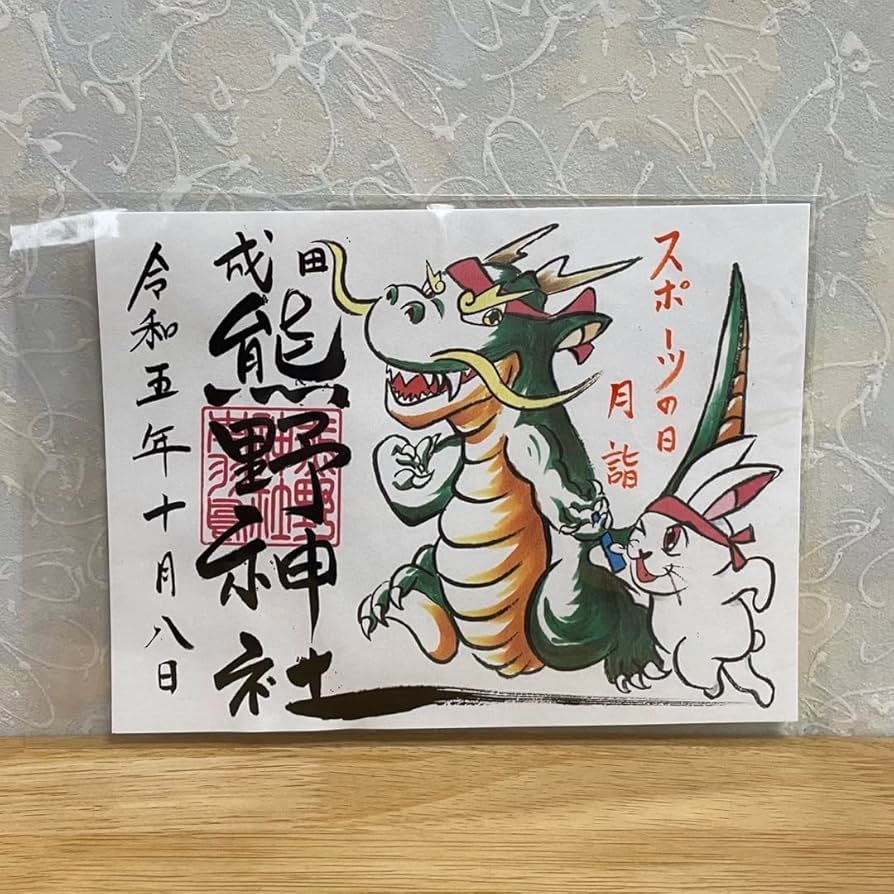 スポーツの日
月詣
成田
熊野神社
令和五年十月八日